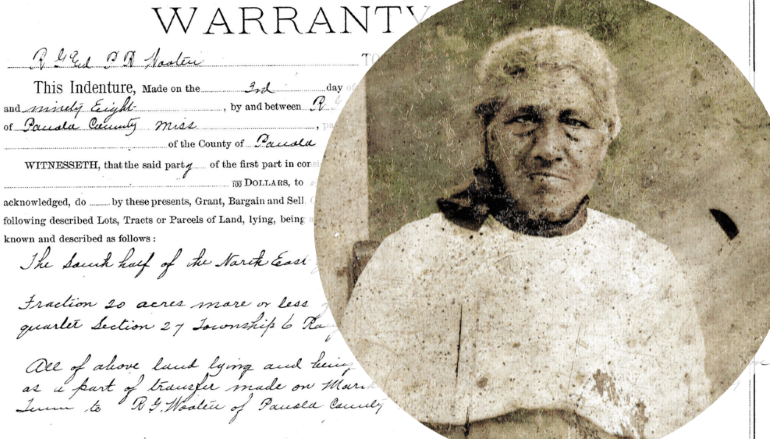 WARRANTY
R G Ed P R Wooten TO
This Indenture, Made on the 3rd day of
and ninety Eight, by and between R
of Panola County Miss
of the County of Panola
WITNESSETH, that the said party of the first part in con
100 DOLLARS, to
acknowledged, do by these presents, Grant, Bargain and Sell
following described Lots, Tracts or Parcels of Land, lying, being
known and described as follows:
The South half of the North East
Fraction 20 acres more or less
quarter Section 27 Township 6 Ra
All of above land lying and being
as a part of transfer made on Mar
to R G Wooten of Panola County